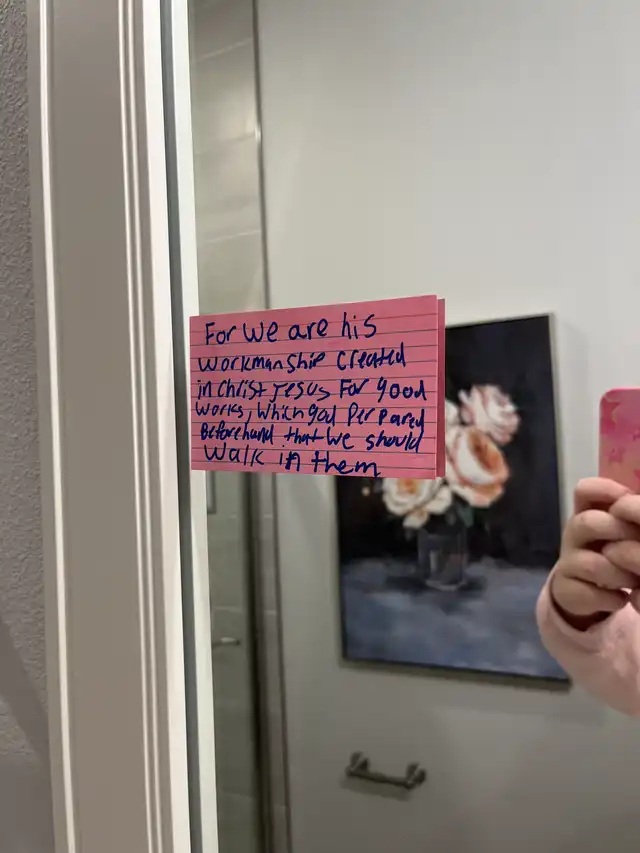 For we are his
workmanship created
in christ jesus For good
works, which god perpared
Beforehand that we should
walk in them